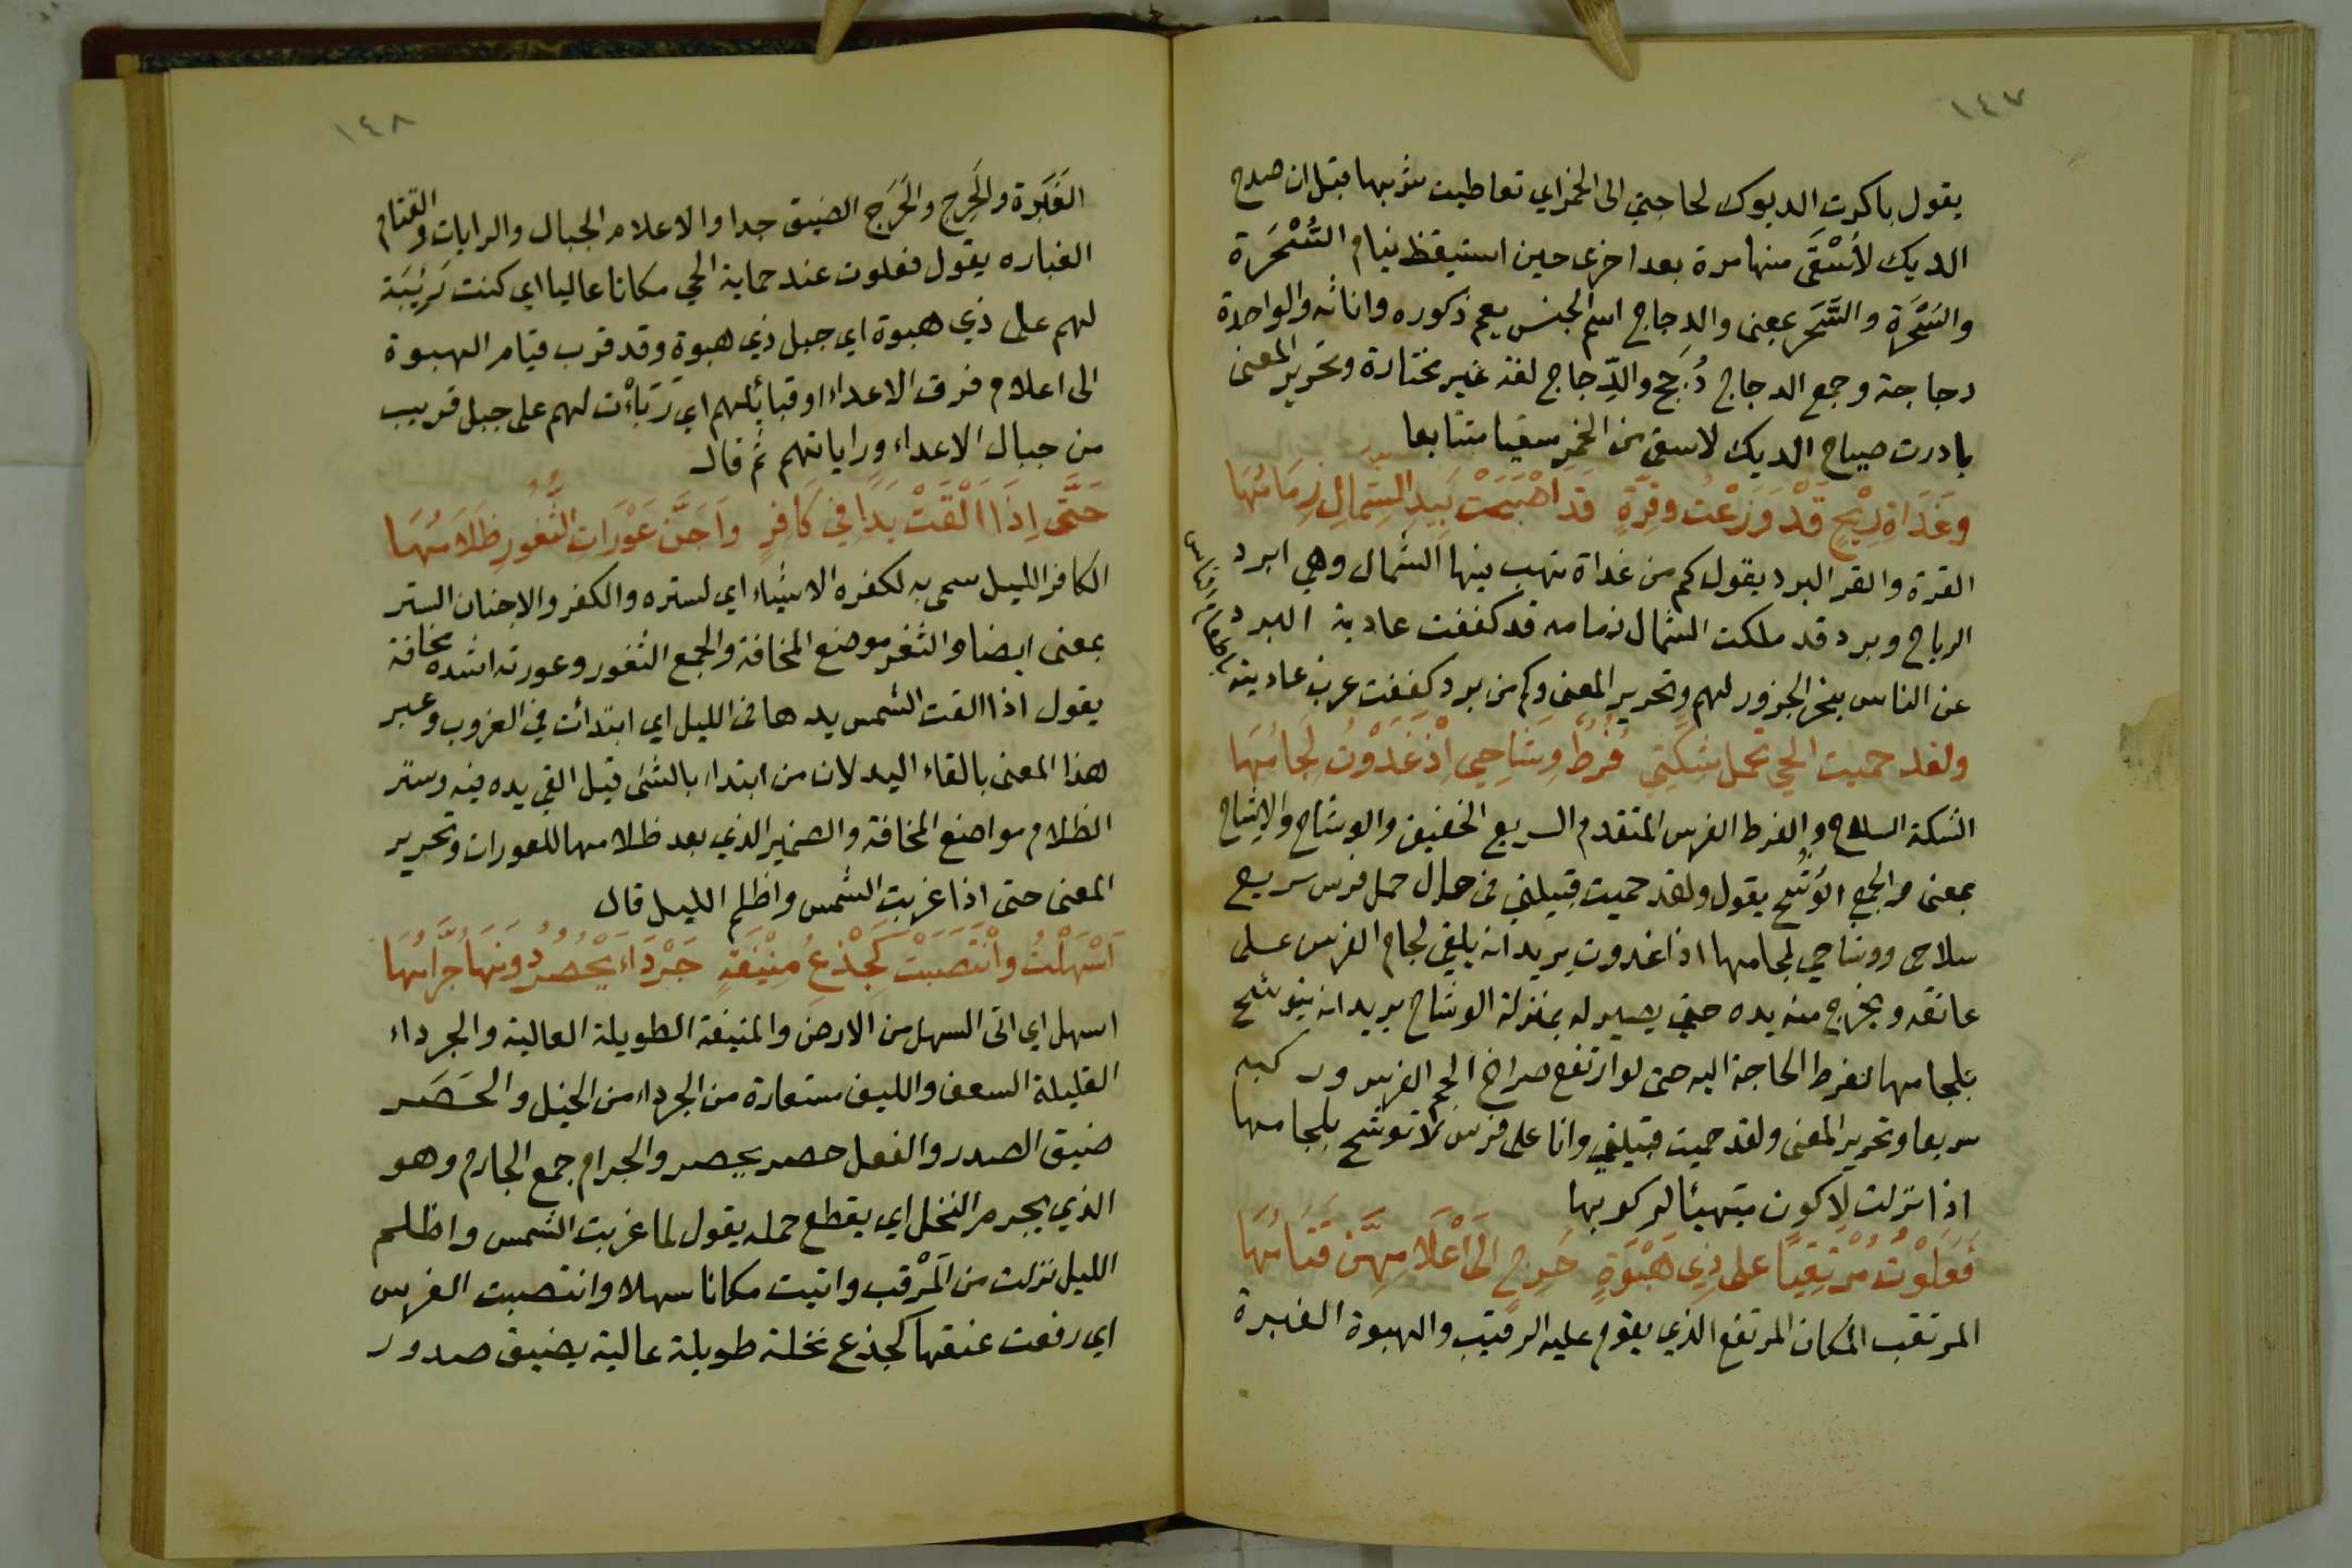 ١٤٧
يقول باكرت الديوك لحاجتي الى الخمر اي تعاطيت شربها قبل ان صدح
الديك لأُسْقَى منها مرة بعد اخرى حين استيقظ نيام السُّحْرَة
والسُّحْرَةِ والسَّحَر بمعنى والدجاج اسم الجنس يعم ذكوره واناثه والواحدة
دجاجة وجمع الدجاج دُجُج والدِّجاج لغة غير مختارة وتحرير المعنى
بادرت صياح الديك لاسقى من الخمر سقيا متتابعا
وغَدَاةِ رِيْحٍ قَدْ وَزَعْتُ وقِرَّةٍ قَدْ اَصْبَحَتْ بِيَدِ الشِّمَالِ زِمَامُهَا
القرة والقر البرد يقول كم من غداة تهب فيها الشمال وهي ابرد
الرياح وبرد قد ملكت الشمال زمامه قد كففت عادية البرد
عن الناس بنحر الجزور لهم وتحرير المعنى وكم من برد كففت غرب عاديته
باطعام الناس
ولقد حميت الحي تحمل شِكَّتِي فُرُطٌ وِشَاحِي اِذْ غَدَوْتُ لِجَامُهَا
الشكة السلاح والفرط الفرس المتقدم السريع الخفيف والوشاح والاِشاح
بمعنى والجمع الوُشُح يقول ولقد حميت قبيلتي في حال حمل فرس سريع
سلاحي ووشاحي لجامها اذا غدوت يريد انه يلقي لجام الفرس على
عاتقه ويخرج منه يده حتى يصير له بمنزلة الوشاح يريد انه يتوشح
بلجامها لفرط الحاجة اليه حتى لو ارتفع صراخ الجم الفرس وركبه
سريعا وتحرير المعنى ولقد حميت قبيلتي وانا على فرس لا توشح بلجامها
اذا نزلت لاكون متهيئا لركوبها
فَعَلَوْتُ مُرْتَقِبًا على ذِي هَبْوَةٍ حَرِجٍ اِلَى اَعْلَامِهِنَّ قَتَامُهَا
المرتقب المكان المرتفع الذي يقوم عليه الرقيب والهبوة الغبرة
١٤٨
الغَبَرة والحَرِج والحَرَج الضيق جدا والاعلام الجبال والرايات والقتام
الغباره يقول فعلوت عند حماية الحي مكانا عاليا اي كنت رَبِيْئَة
لهم على ذي هبوة اي جبل ذي هبوة وقد قرب قيام الهبوة
الى اعلام فرق الاعداء او قبائلهم اي رَبَأْت لهم على جبل قريب
من جبال الاعداء وراياتهم ثم قال
حَتَّى اِذَا اَلْقَتْ يَدًا فِي كَافِرٍ واَجَنَّ عَوْرَاتِ الثُّغُورِ ظَلَامُهَا
الكافر الليل سمي به لكفره الاشياء اي لستره والكفر والاجنان الستر
بمعنى ايضا والثغر موضع المخافة والجمع الثغور وعورته اشده مخافة
يقول اذا القت الشمس يدها في الليل اي ابتدأت في الغروب وعبر
هذا المعنى بالقاء اليد لان من ابتداء بالشئ قيل القي يده فيه وستر
الظلام مواضع المخافة والضمير الذي بعد ظلامها للعورات وتحرير
المعنى حتى اذا غربت الشمس واظلم الليل قال
اَسْهَلْتُ وانْتَصَبَتْ كَجِذْعِ مُنِيْفَةٍ جَرْدَاءَ يَحْصَرُ دُونَهَا جُرَّامُهَا
اسهل اي اتى السهل من الارض والمنيفة الطويلة العالية والجرداء
القليلة السعف والليف مستعارة من الجرداء من الخيل والحَصَر
ضيق الصدر والفعل حصر يحصر والجرام جمع الجارم وهو
الذي يجرم النخل اي يقطع حمله يقول لما غربت الشمس واظلم
الليل نزلت من المَرْقب واتيت مكانا سهلا وانتصبت الفرس
اي رفعت عنقها كجذع نخلة طويلة عالية يضيق صدور